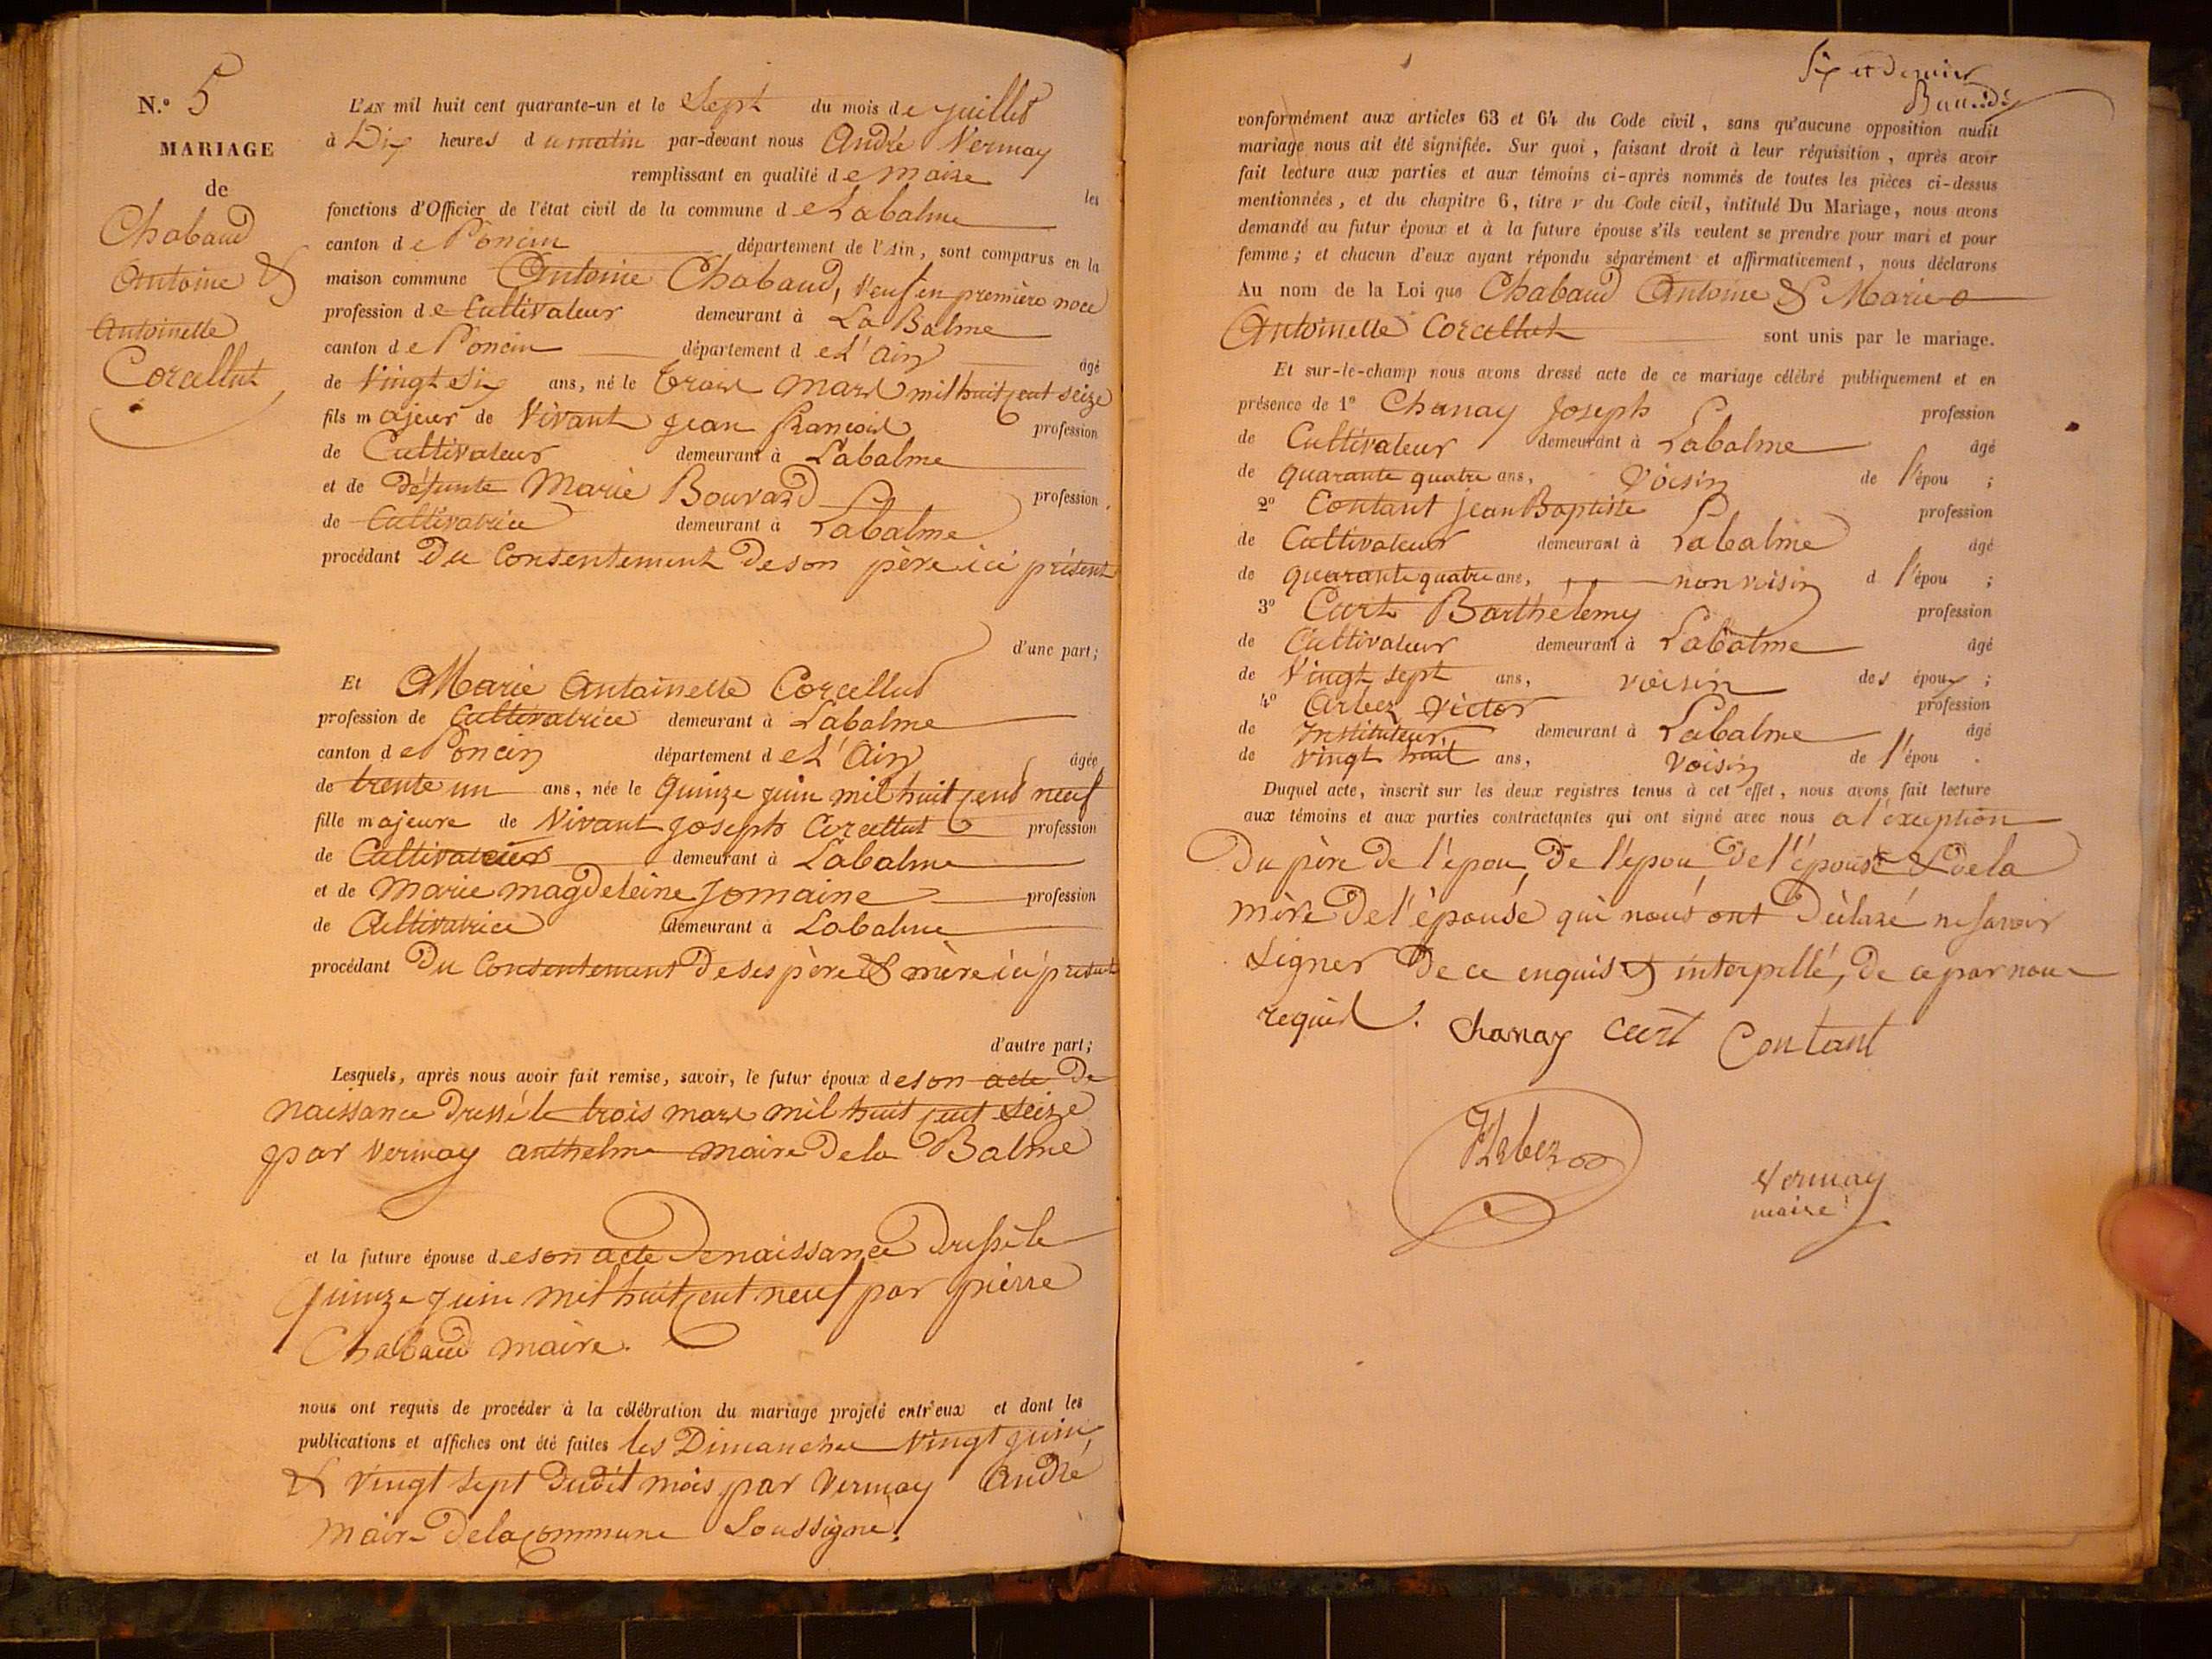 N.° 5
MARIAGE
de
Chabaud
Antoine &
Antoinette
Corcellut
L'AN mil huit cent quarante-un et le Sept du mois de juillet
à Dix heures du matin par-devant nous André Vermay
remplissant en qualité de Maire les
fonctions d'Officier de l'état civil de la commune de Labalme
canton de Poncin département de l'Ain, sont comparus en la
maison commune Antoine Chabaud, veuf en première noce
profession de Cultivateur demeurant à La Balme
canton de Poncin département de L'Ain âgé
de Vingt six ans, né le trois mars mil huit cent seize
fils majeur de Vivant Jean François profession
de Cultivateur demeurant à Labalme
et de défunte Marie Bouvard profession
de Cultivatrice demeurant à Labalme
procédant Du Consentement De son père ici présent
d'une part;
Et Marie Antoinette Corcellut
profession de Cultivatrice demeurant à Labalme
canton de Poncin département de L'Ain âgée
de trente un ans, née le quinze juin mil huit cent neuf
fille majeure de Vivant Joseph Corcellut profession
de Cultivateur demeurant à Labalme
et de Marie magdeleine Jomaine profession
de Cultivatrice demeurant à Labalme
procédant Du Consentement De ses père & mère ici présent
d'autre part;
Lesquels, après nous avoir fait remise, savoir, le futur époux de son acte De
naissance Dressé le trois mars mil huit cent seize
par Vermay anthelme maire De la Balme
et la future épouse de son acte De naissance Dressé le
quinze juin mil huit cent neuf par pierre
Chabaud maire.
nous ont requis de procéder à la célébration du mariage projeté entr'eux et dont les
publications et affiches ont été faites les Dimanches Vingt juin,
& vingt sept Dudit mois par Vermay André
Maire De la commune Soussigné.
Six et Dernier
conformément aux articles 63 et 64 du Code civil, sans qu'aucune opposition audit
mariage nous ait été signifiée. Sur quoi, faisant droit à leur réquisition, après avoir
fait lecture aux parties et aux témoins ci-après nommés de toutes les pièces ci-dessus
mentionnées, et du chapitre 6, titre v du Code civil, intitulé Du Mariage, nous avons
demandé au futur époux et à la future épouse s'ils veulent se prendre pour mari et pour
femme; et chacun d'eux ayant répondu séparément et affirmativement, nous déclarons
Au nom de la Loi que Chabaud Antoine & Marie
Antoinette Corcellut sont unis par le mariage.
Et sur-le-champ nous avons dressé acte de ce mariage célébré publiquement et en
présence de 1° Chanay Joseph profession
de Cultivateur demeurant à Labalme âgé
de quarante quatre ans, Voisin de l'épou ;
2° Contant Jean Baptiste profession
de Cultivateur demeurant à Labalme âgé
de quarante quatre ans, non voisin d l'épou ;
3° Curt Barthélemy profession
de Cultivateur demeurant à Labalme âgé
de Vingt sept ans, voisin des époux ;
4° Arbez Victor profession
de Instituteur demeurant à Labalme âgé
de vingt huit ans, Voisin de l'épou .
Duquel acte, inscrit sur les deux registres tenus à cet effet, nous avons fait lecture
aux témoins et aux parties contractantes qui ont signé avec nous a l'exception
Du père De l'épou, De l'épou De l'épouse & De la
mère De l'épouse qui nous ont Déclaré ne savoir
signer De ce enquis & interpellé, De ce par nous
requis. Chanay Curt Contant
VArbez
Vermay
maire